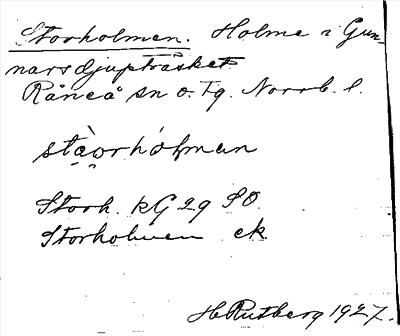 Storholmen. Holme i Gun-
narsdjupträsket
Råneå sn o. Tg. Norrb. l.
stàorhólman
Storh. kG 29 SO
Storholmen ek
H Rutberg 1927.